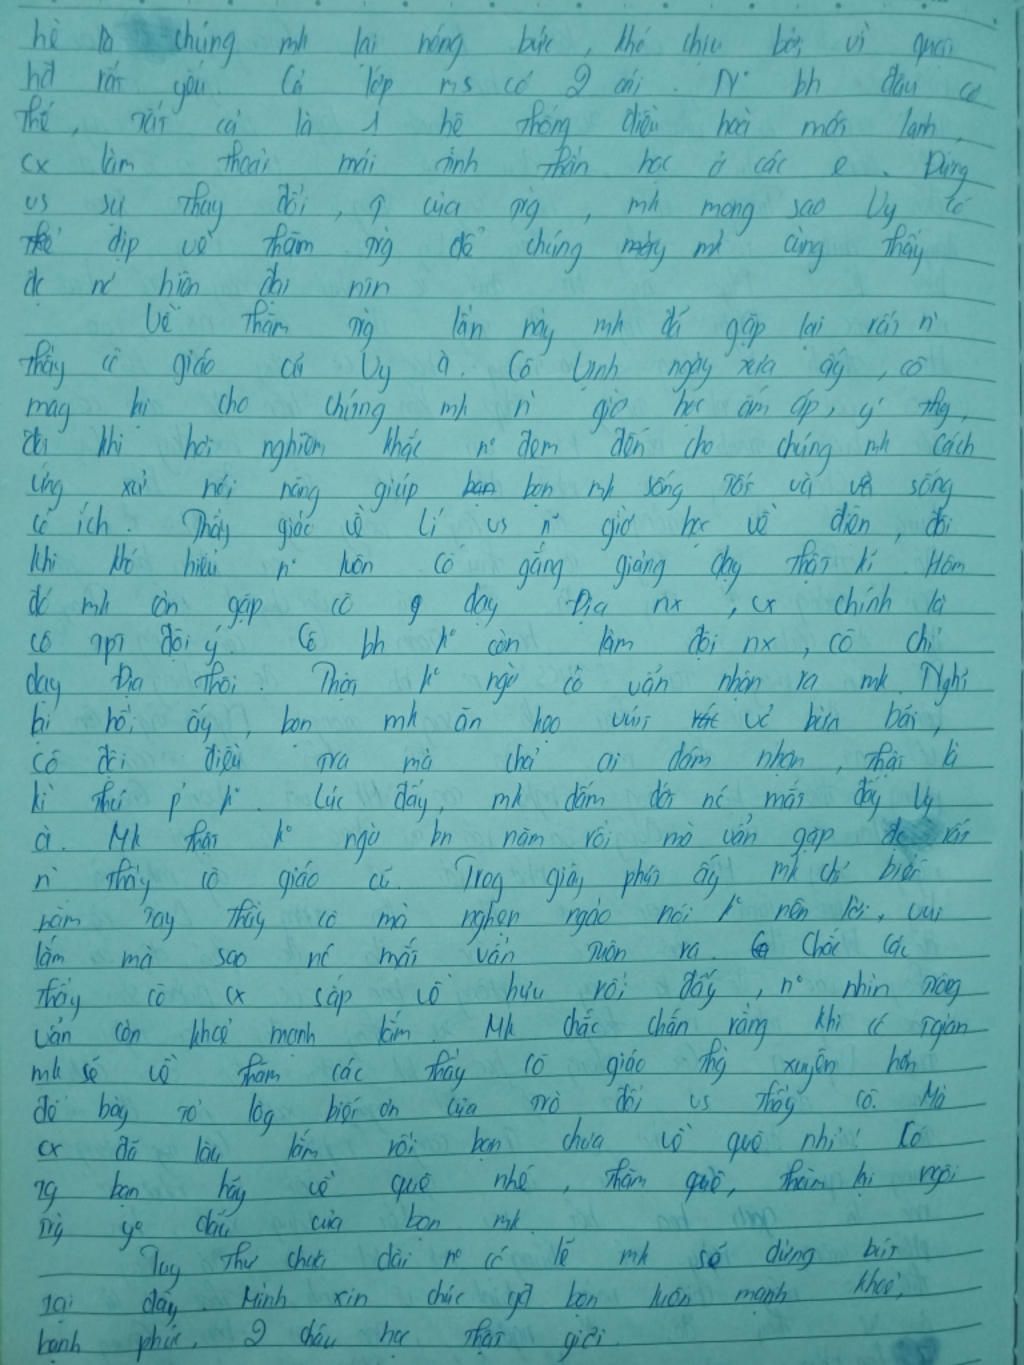 hè là chúng mk lại nóng bức, khó chịu bởi vì quạt
hđ rất yếu. Cả lớp ms có 2 cái. Nº bh đâu có
thế, tất cả là 1 hệ thống điều hoà mới lạnh,
cx làm thoải mái tinh thần học ở các e. Đứng
vs sự thay đổi, of của trg, mk mong sao Vy có
dịp về thăm trg để chúng mk cùng thấy
đc nó hiện đại ntn
Về thăm trg lần này mk đã gặp lại rất n'
thầy cô giáo cũ Vy à. Cô Vinh ngày xưa ấy, cô
mag lại cho chúng mk n' giờ học ấm áp, ý thg,
đôi khi hơi nghiêm khắc nº đem đến cho chúng mk cách
ứng xử nói năng giúp bọn mk sống tốt và sống
có ích. Thầy giáo về lí vs n~ giờ học về điện, đôi
khi khó hiểu nº luôn cố gắng giảng dạy thật kĩ. Hôm
đó mk còn gặp cô dạy Địa nx, cx chính là
cô tpt đội ý. Cô bh kº còn làm đội nx, cô chỉ
dạy Địa thôi. Thật kº ngờ cô vẫn nhận ra mk. Nghĩ
lại hồi ấy, bọn mk ăn kẹo vứt vỏ bừa bãi,
cô đội điều tra mà chả ai dám nhận, thật là
kì thú p' kº. Lúc đấy, mk đẫm đới nc mắt đấy Vy
à. Mk thật kº ngờ bn năm rồi mà vẫn gặp đc rất
n' thầy cô giáo cũ. Trog giây phút ấy mk chỉ biết
nắm tay thầy cô mà nghẹn ngào nói kº nên lời, vui
lắm mà sao nc mắt vẫn tuôn ra. Chắc các
thầy cô cx sắp về hưu rồi đấy, nº nhìn trông
vẫn còn khoẻ mạnh lắm. Mk chắc chắn rằng khi có tgian
mk sẽ về thăm các thầy cô giáo thg xuyên hơn
để bày tỏ lòg biết ơn của trò đối vs thầy cô. Mà
cx đã lâu lắm rồi bạn chưa về quê nhỉ! Có
tg bạn hãy về quê nhé, thăm quê, thăm lại ngôi
trg yº dấu của bọn mk.
Tuy thư chưa dài nº có lẽ mk sẽ dừng bút
tại đây. Mình xin chúc gđ bạn luôn mạnh khoẻ,
hạnh phúc, 2 cháu học thật giỏi.